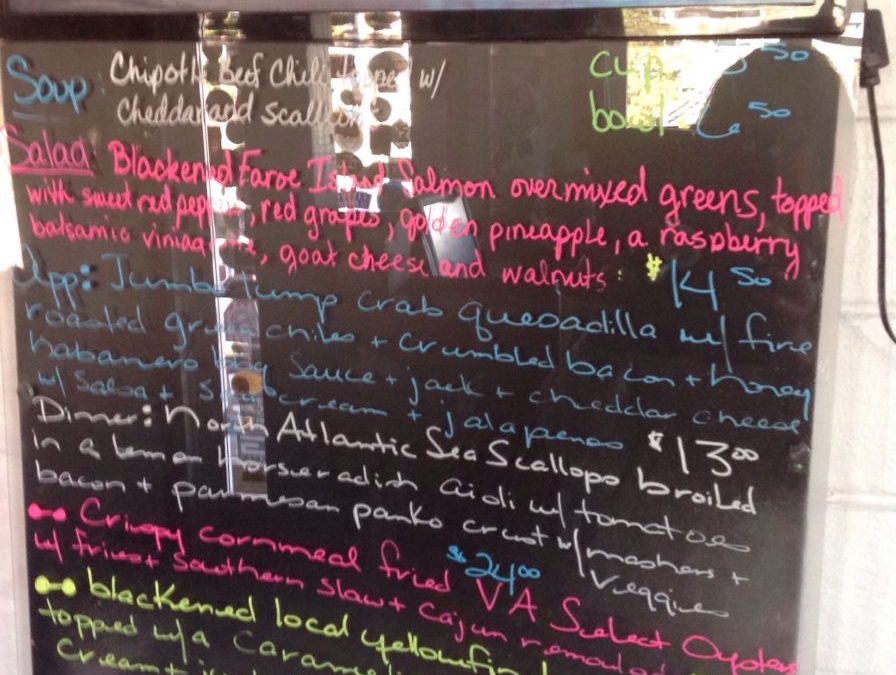 Soup: Chipotle Beef Chili topped w/
Cheddar and scallions
cup 5 50
bowl - 6 50
Salad: Blackened Faroe Island Salmon over mixed greens, topped
with sweet red peppers, red grapes, golden pineapple, a raspberry
balsamic viniagrette, goat cheese and walnuts: $14 50
App: Jumbo lump crab quesadilla w/ fire
roasted green chiles + crumbled bacon + honey
habanero bbq sauce + jack + cheddar cheese
w/ salsa + sour cream + jalapenos $13 00
Dinner: North Atlantic Sea Scallops broiled
in a lemon horseradish aioli w/ tomatoes
bacon + parmesan panko crust w/ mashers +
veggies
$24 00
Crispy cornmeal fried VA Select Oysters
w/ fries + Southern Slaw + Cajun
blackened local yellowfin
topped w/ a
Cream +